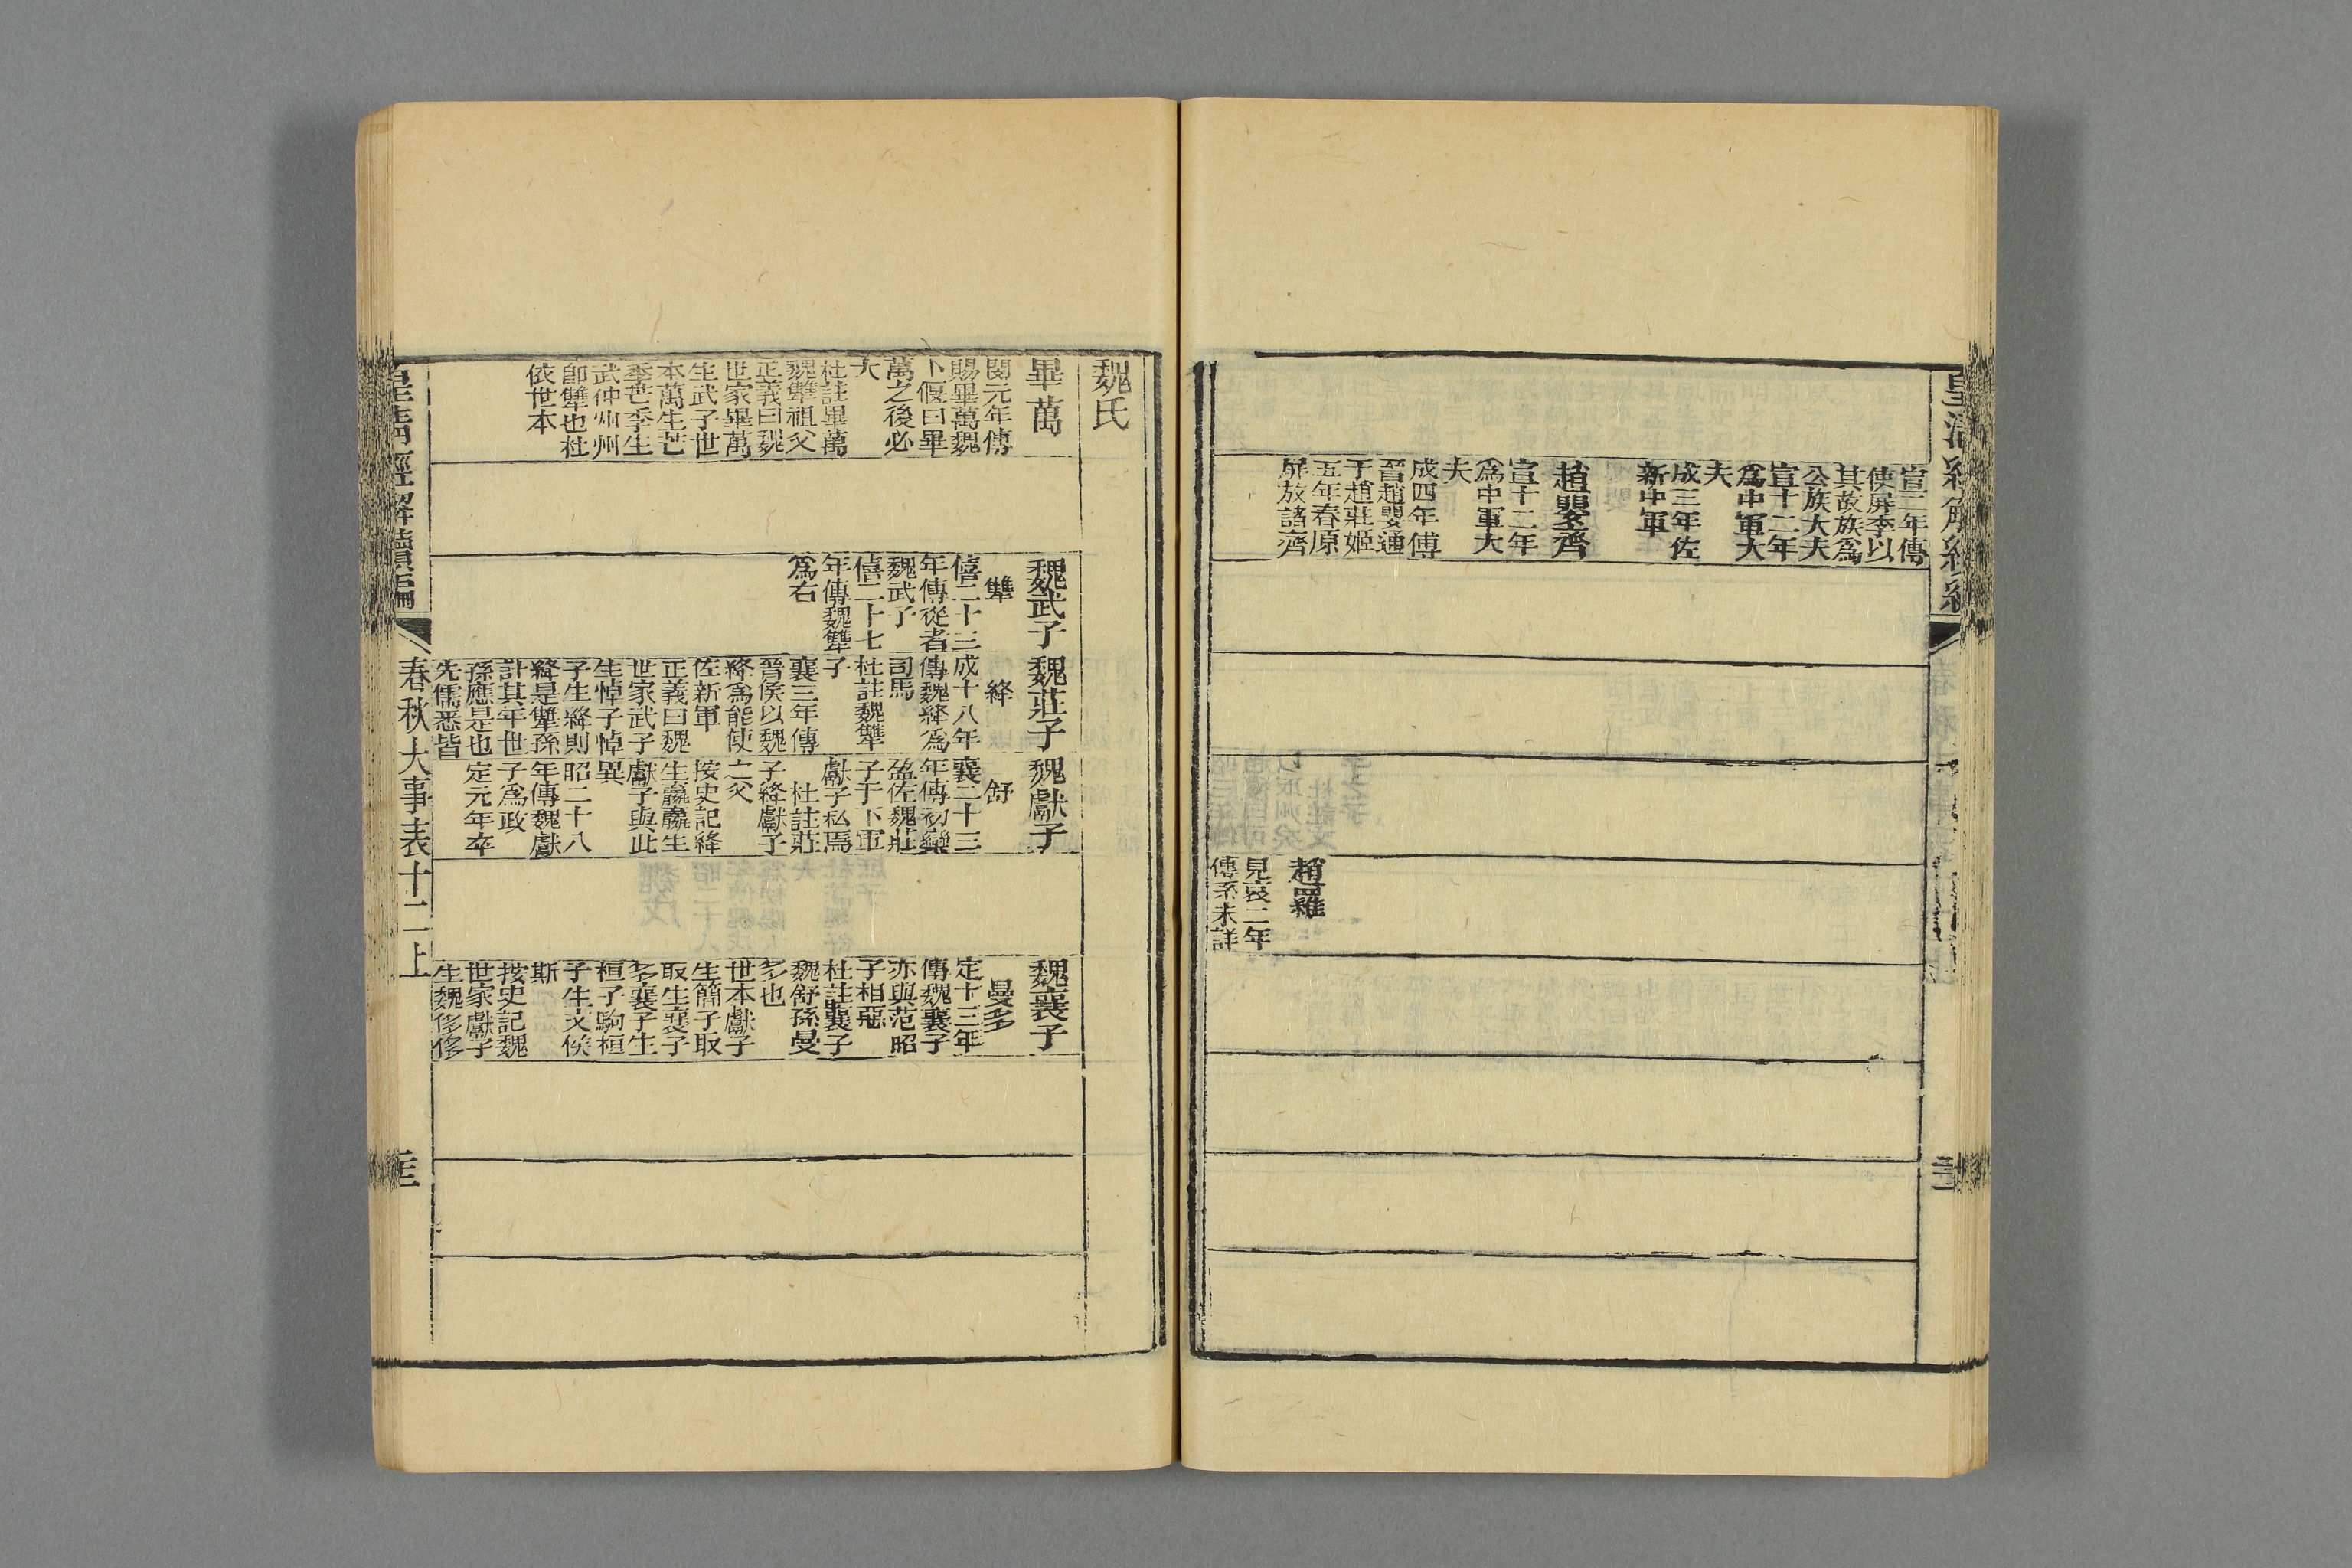 宣二年傳
使屏季以
其故族爲
公族大夫
宣十二年
爲中軍大
夫
成三年佐
新中軍
趙嬰齊
宣十二年
爲中軍大
夫
成四年傳
晉趙嬰通
于趙莊姬
五年春原
屏放諸齊
趙羅
見哀二年
傳系未詳
魏氏
畢萬
閔元年傳
賜畢萬魏
卜偃曰畢
萬之後必
大
杜註畢萬
魏犨祖父
正義曰魏
世家畢萬
生武子世
本萬生芒
季芒季生
武仲州州
卽犨也杜
依世本
魏武子
犨
僖二十三
年傳從者
魏武子
僖二十七
年傳魏犨
爲右
魏莊子
絳
成十八年
傳魏絳爲
司馬
杜註魏犨
子
襄三年傳
晉侯以魏
絳爲能使
佐新軍
正義曰魏
世家武子
生悼子悼
子生絳則
絳是犨孫
計其年世
孫應是也
先儒悉皆
魏獻子
舒
襄二十三
年傳初欒
盈佐魏莊
子于下軍
獻子私焉
杜註莊
子絳獻子
之父
按史記絳
生嬴嬴生
獻子與此
異
昭二十八
年傳魏獻
子爲政
定元年卒
魏襄子
曼多
定十三年
傳魏襄子
亦與范昭
子相惡
杜註襄子
魏舒孫曼
多也
世本獻子
生簡子取
取生襄子
多襄子生
桓子駒桓
子生文侯
斯
按史記魏
世家獻子
生魏侈侈
皇淸經解續編
春秋大事表十二上